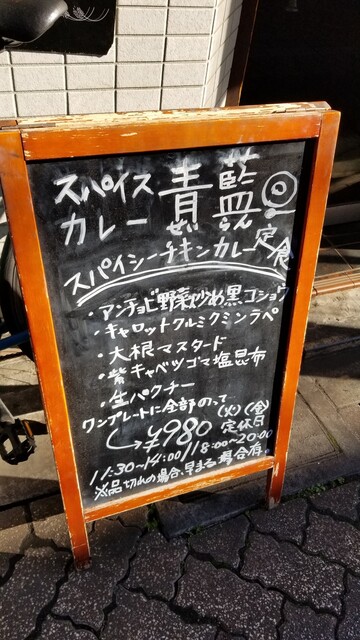 スパイス
カレー 青藍
せいらん
スパイシーチキンカレー定食
・アンチョビ野菜炒め黒コショウ
・キャロットクルミクミンラペ
・大根マスタード
・紫キャベツゴマ塩昆布
・生パクチー
ワンプレートに全部のって
¥980
(火)(金)
定休日
11:30~14:00/18:00~20:00
※品切れの場合、早まる場合有。